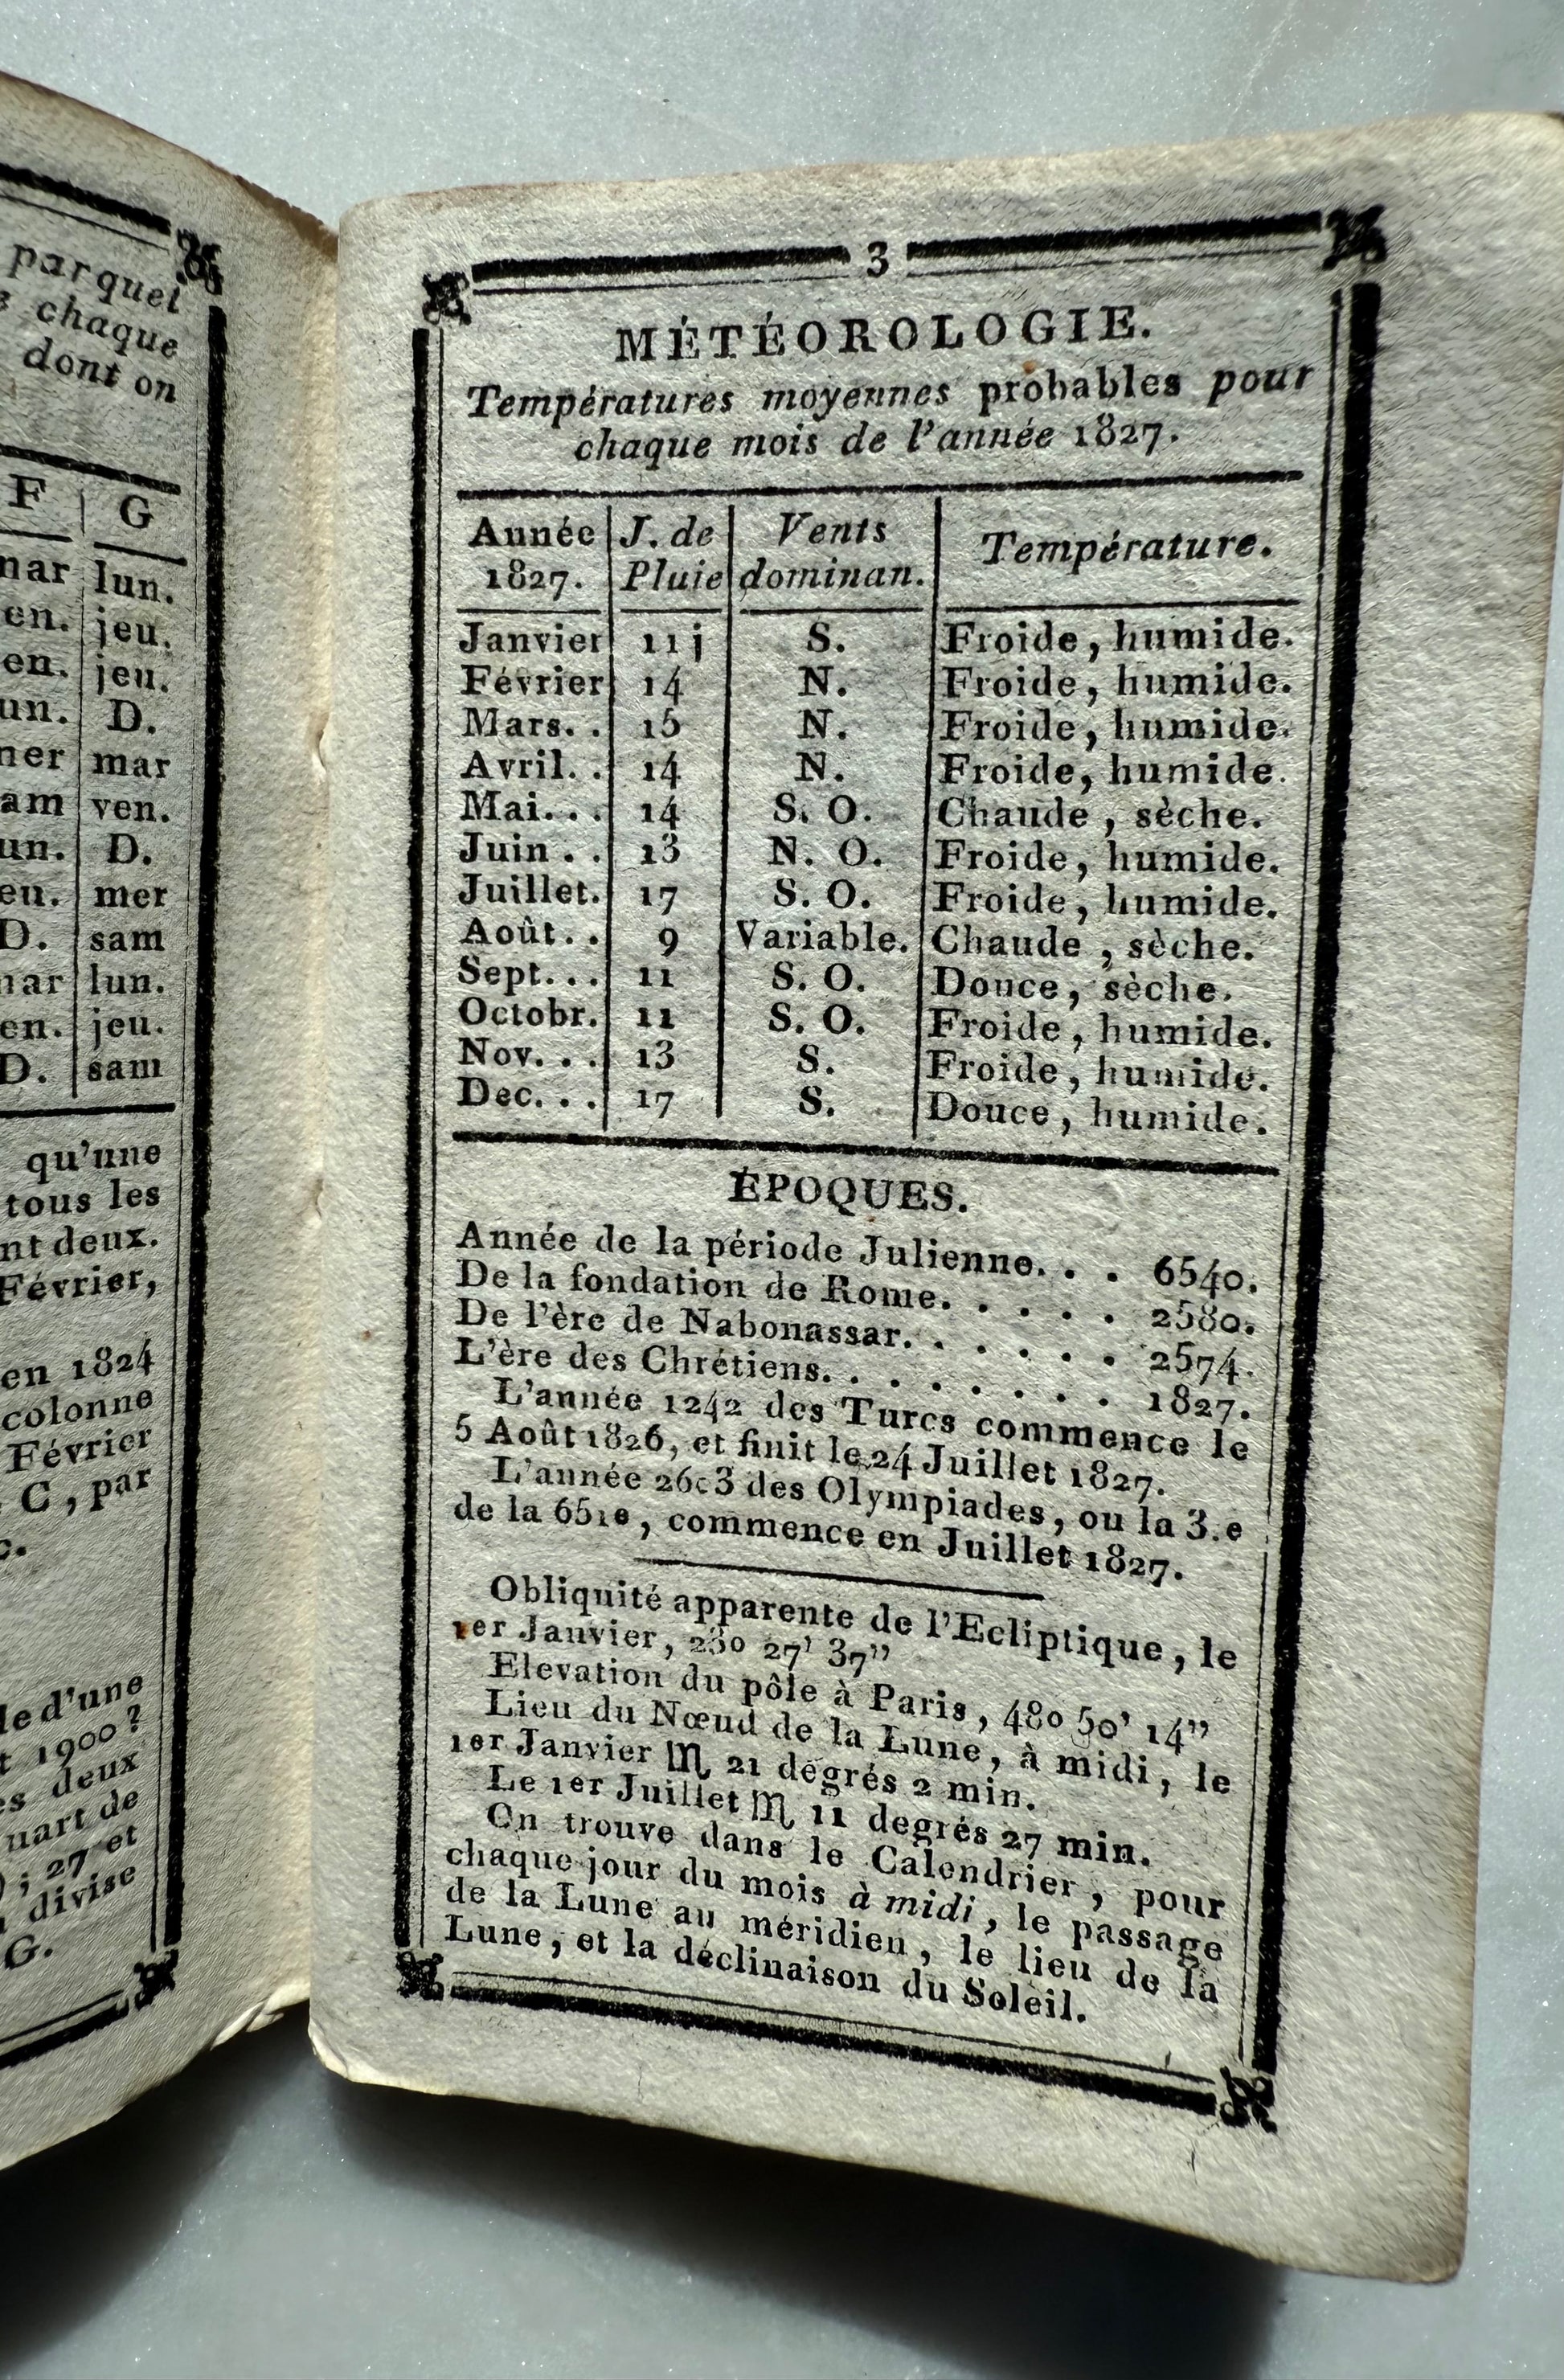 par quel
chaque
dont on
F | G
mar | lun.
en. | jeu.
en. | jeu.
un. | D.
mer | mar
am | ven.
un. | D.
eu. | mer
D. | sam
mar | lun.
en. | jeu.
D. | sam
qu'une
tous les
nt deux.
Février,
en 1824
colonne
Février
C, par
c.
le d'une
t 1900 ?
es deux
uart de
) ; 27 et
divise
G.
3
MÉTÉOROLOGIE.
Températures moyennes probables pour
chaque mois de l'année 1827.
Année | J. de | Vents | Température.
1827. | Pluie | dominan.
Janvier | 11 j | S. | Froide, humide.
Février | 14 | N. | Froide, humide.
Mars. . | 15 | N. | Froide, humide.
Avril. . | 14 | N. | Froide, humide.
Mai. . . | 14 | S. O. | Chaude, sèche.
Juin . . | 13 | N. O. | Froide, humide.
Juillet. | 17 | S. O. | Froide, humide.
Août. . | 9 | Variable. | Chaude, sèche.
Sept. . . | 11 | S. O. | Douce, sèche.
Octobr. | 11 | S. O. | Froide, humide.
Nov. . . | 13 | S. | Froide, humide.
Dec. . . | 17 | S. | Douce, humide.
ÉPOQUES.
Année de la période Julienne. . . 6540.
De la fondation de Rome. . . . . 2580.
De l'ère de Nabonassar. . . . . . 2574.
L'ère des Chrétiens. . . . . . . . 1827.
L'année 1242 des Turcs commence le
5 Août 1826, et finit le 24 Juillet 1827.
L'année 2603 des Olympiades, ou la 3.e
de la 651e, commence en Juillet 1827.
Obliquité apparente de l'Ecliptique, le
1er Janvier, 23o 27' 37"
Elevation du pôle à Paris, 48o 50' 14"
Lieu du Nœud de la Lune, à midi, le
1er Janvier ♏ 21 degrés 2 min.
Le 1er Juillet ♏ 11 degrés 27 min.
On trouve dans le Calendrier, pour
chaque jour du mois à midi, le passage
de la Lune au méridien, le lieu de la
Lune, et la déclinaison du Soleil.